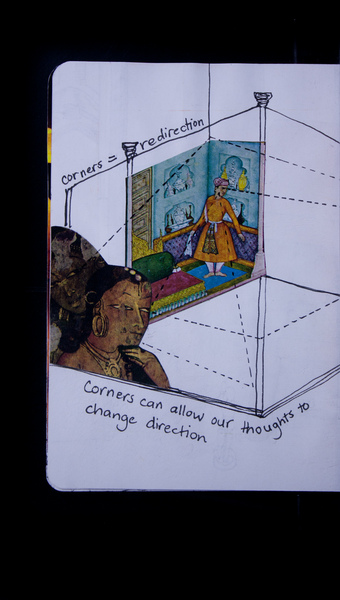 corners = redirection
Corners can allow our thoughts to
change direction